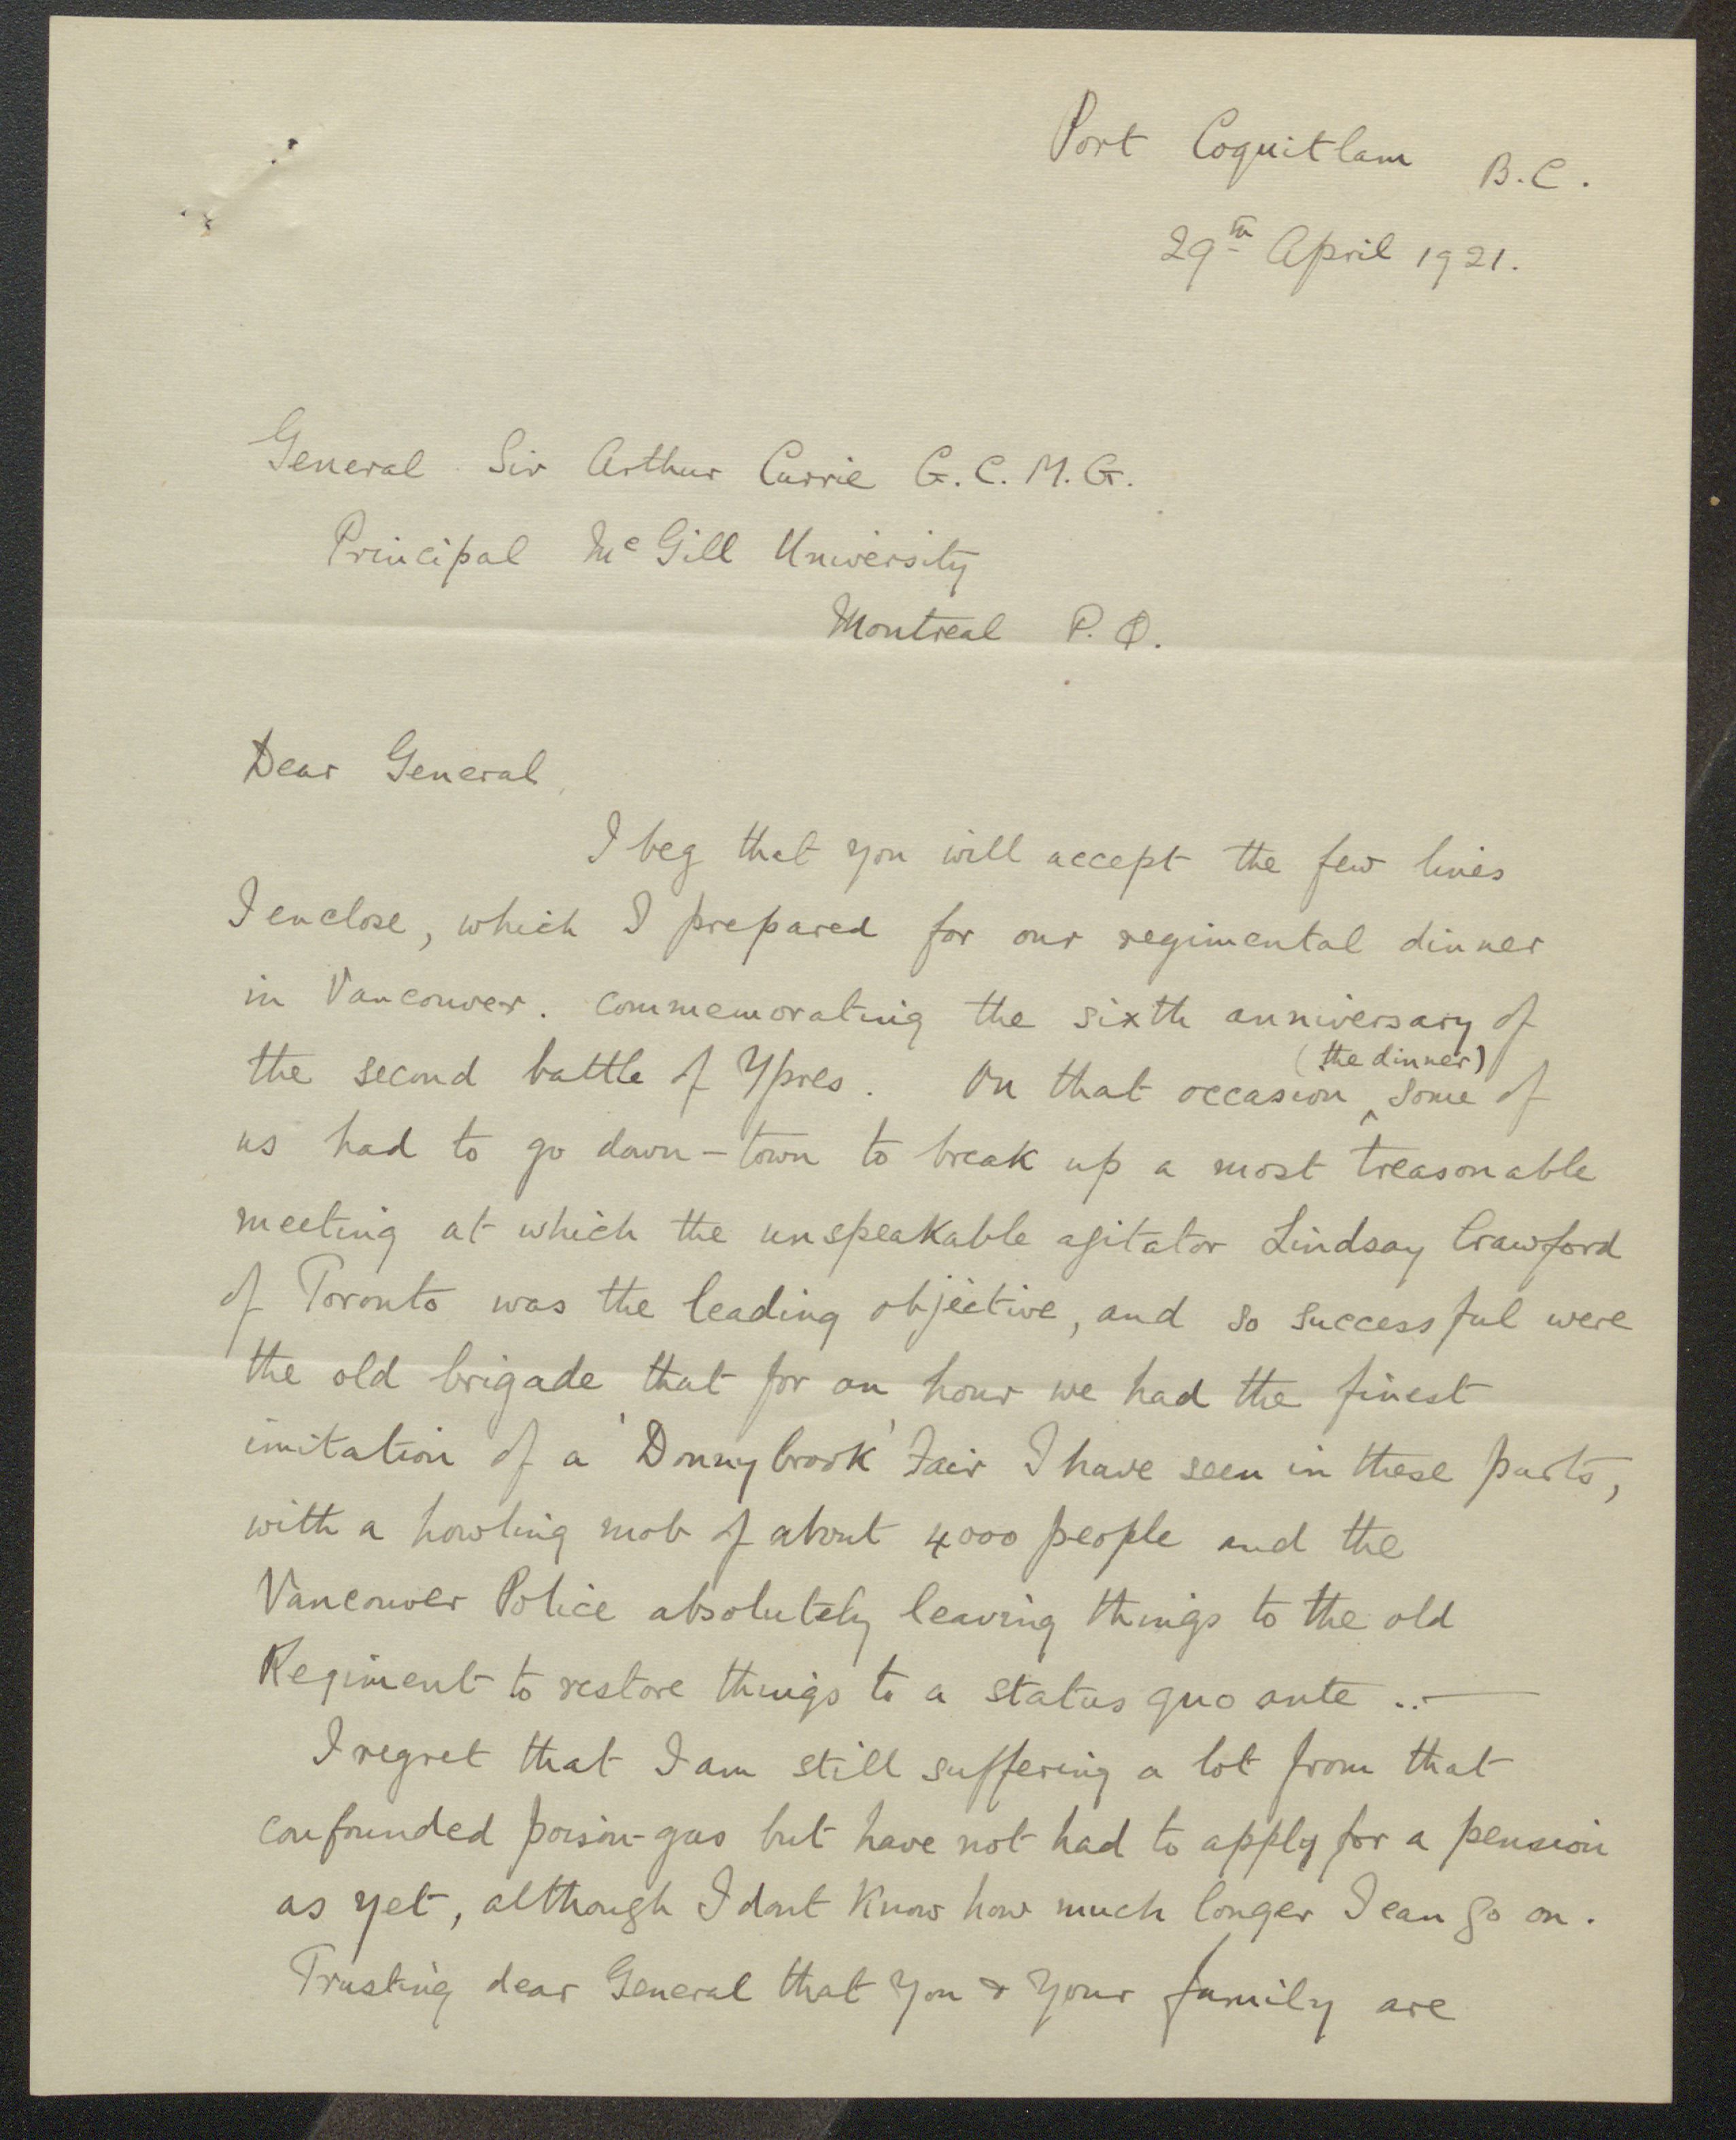 Port Coquitlam B.C.
29th April 1921.
General Sir Arthur Currie G.C.M.G.
Principal McGill University
Montreal P.Q.
Dear General,
I beg that you will accept the few lines
I enclose, which I prepared for our regimental dinner
in Vancouver. commemorating the sixth anniversary of
the second battle of Ypres. On that occasion ^ (the dinner) some of
us had to go down-town to break up a most treasonable
meeting at which the unspeakable agitator Lindsay Crawford
of Toronto was the leading objective, and so successful were
the old brigade that for an hour we had the finest
imitation of a 'Donnybrook' Fair I have seen in these parts,
with a howling mob of about 4000 people and the
Vancouver Police absolutely leaving things to the old
Regiment to restore things to a status quo ante ..—
I regret that I am still suffering a lot from that
confounded poison-gas but have not had to apply for a pension
as yet, although I dont know how much longer I can go on.
Trusting dear General that you & your family are